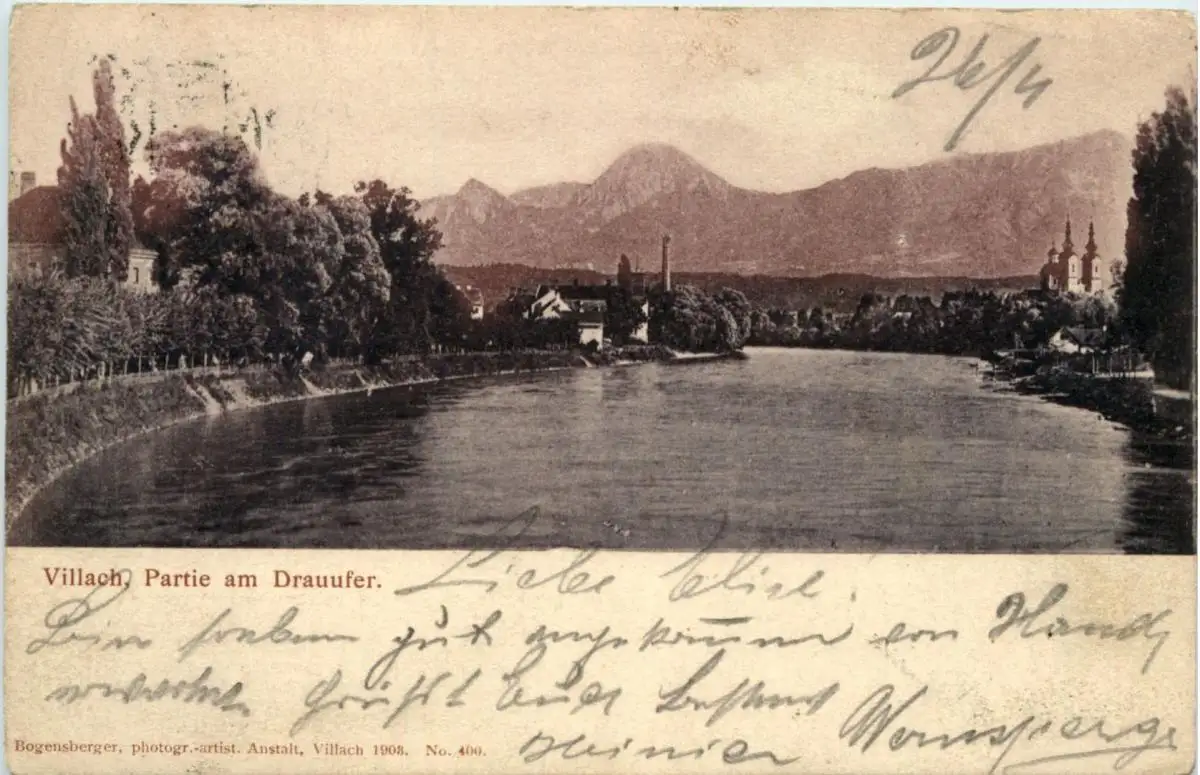 26/4
Villach, Partie am Drauufer.
Liebe Elise!
Bin soeben gut angekommen von
erwartet Grüßt Euch bestens
Bogensberger, photogr.-artist. Anstalt, Villach 1903. No. 400.